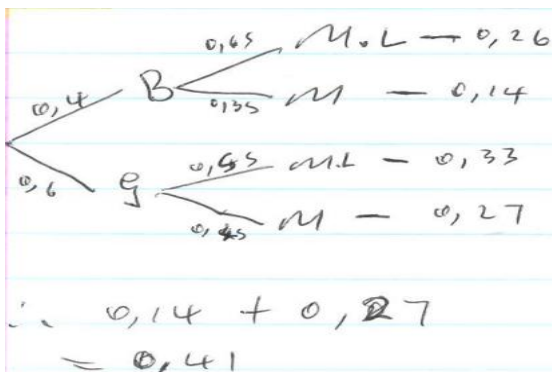 0,65 M.L — 0,26
0,4 B 0,35 M — 0,14
0,6 G 0,55 M.L — 0,33
0,45 M — 0,27
∴ 0,14 + 0,27
= 0,41